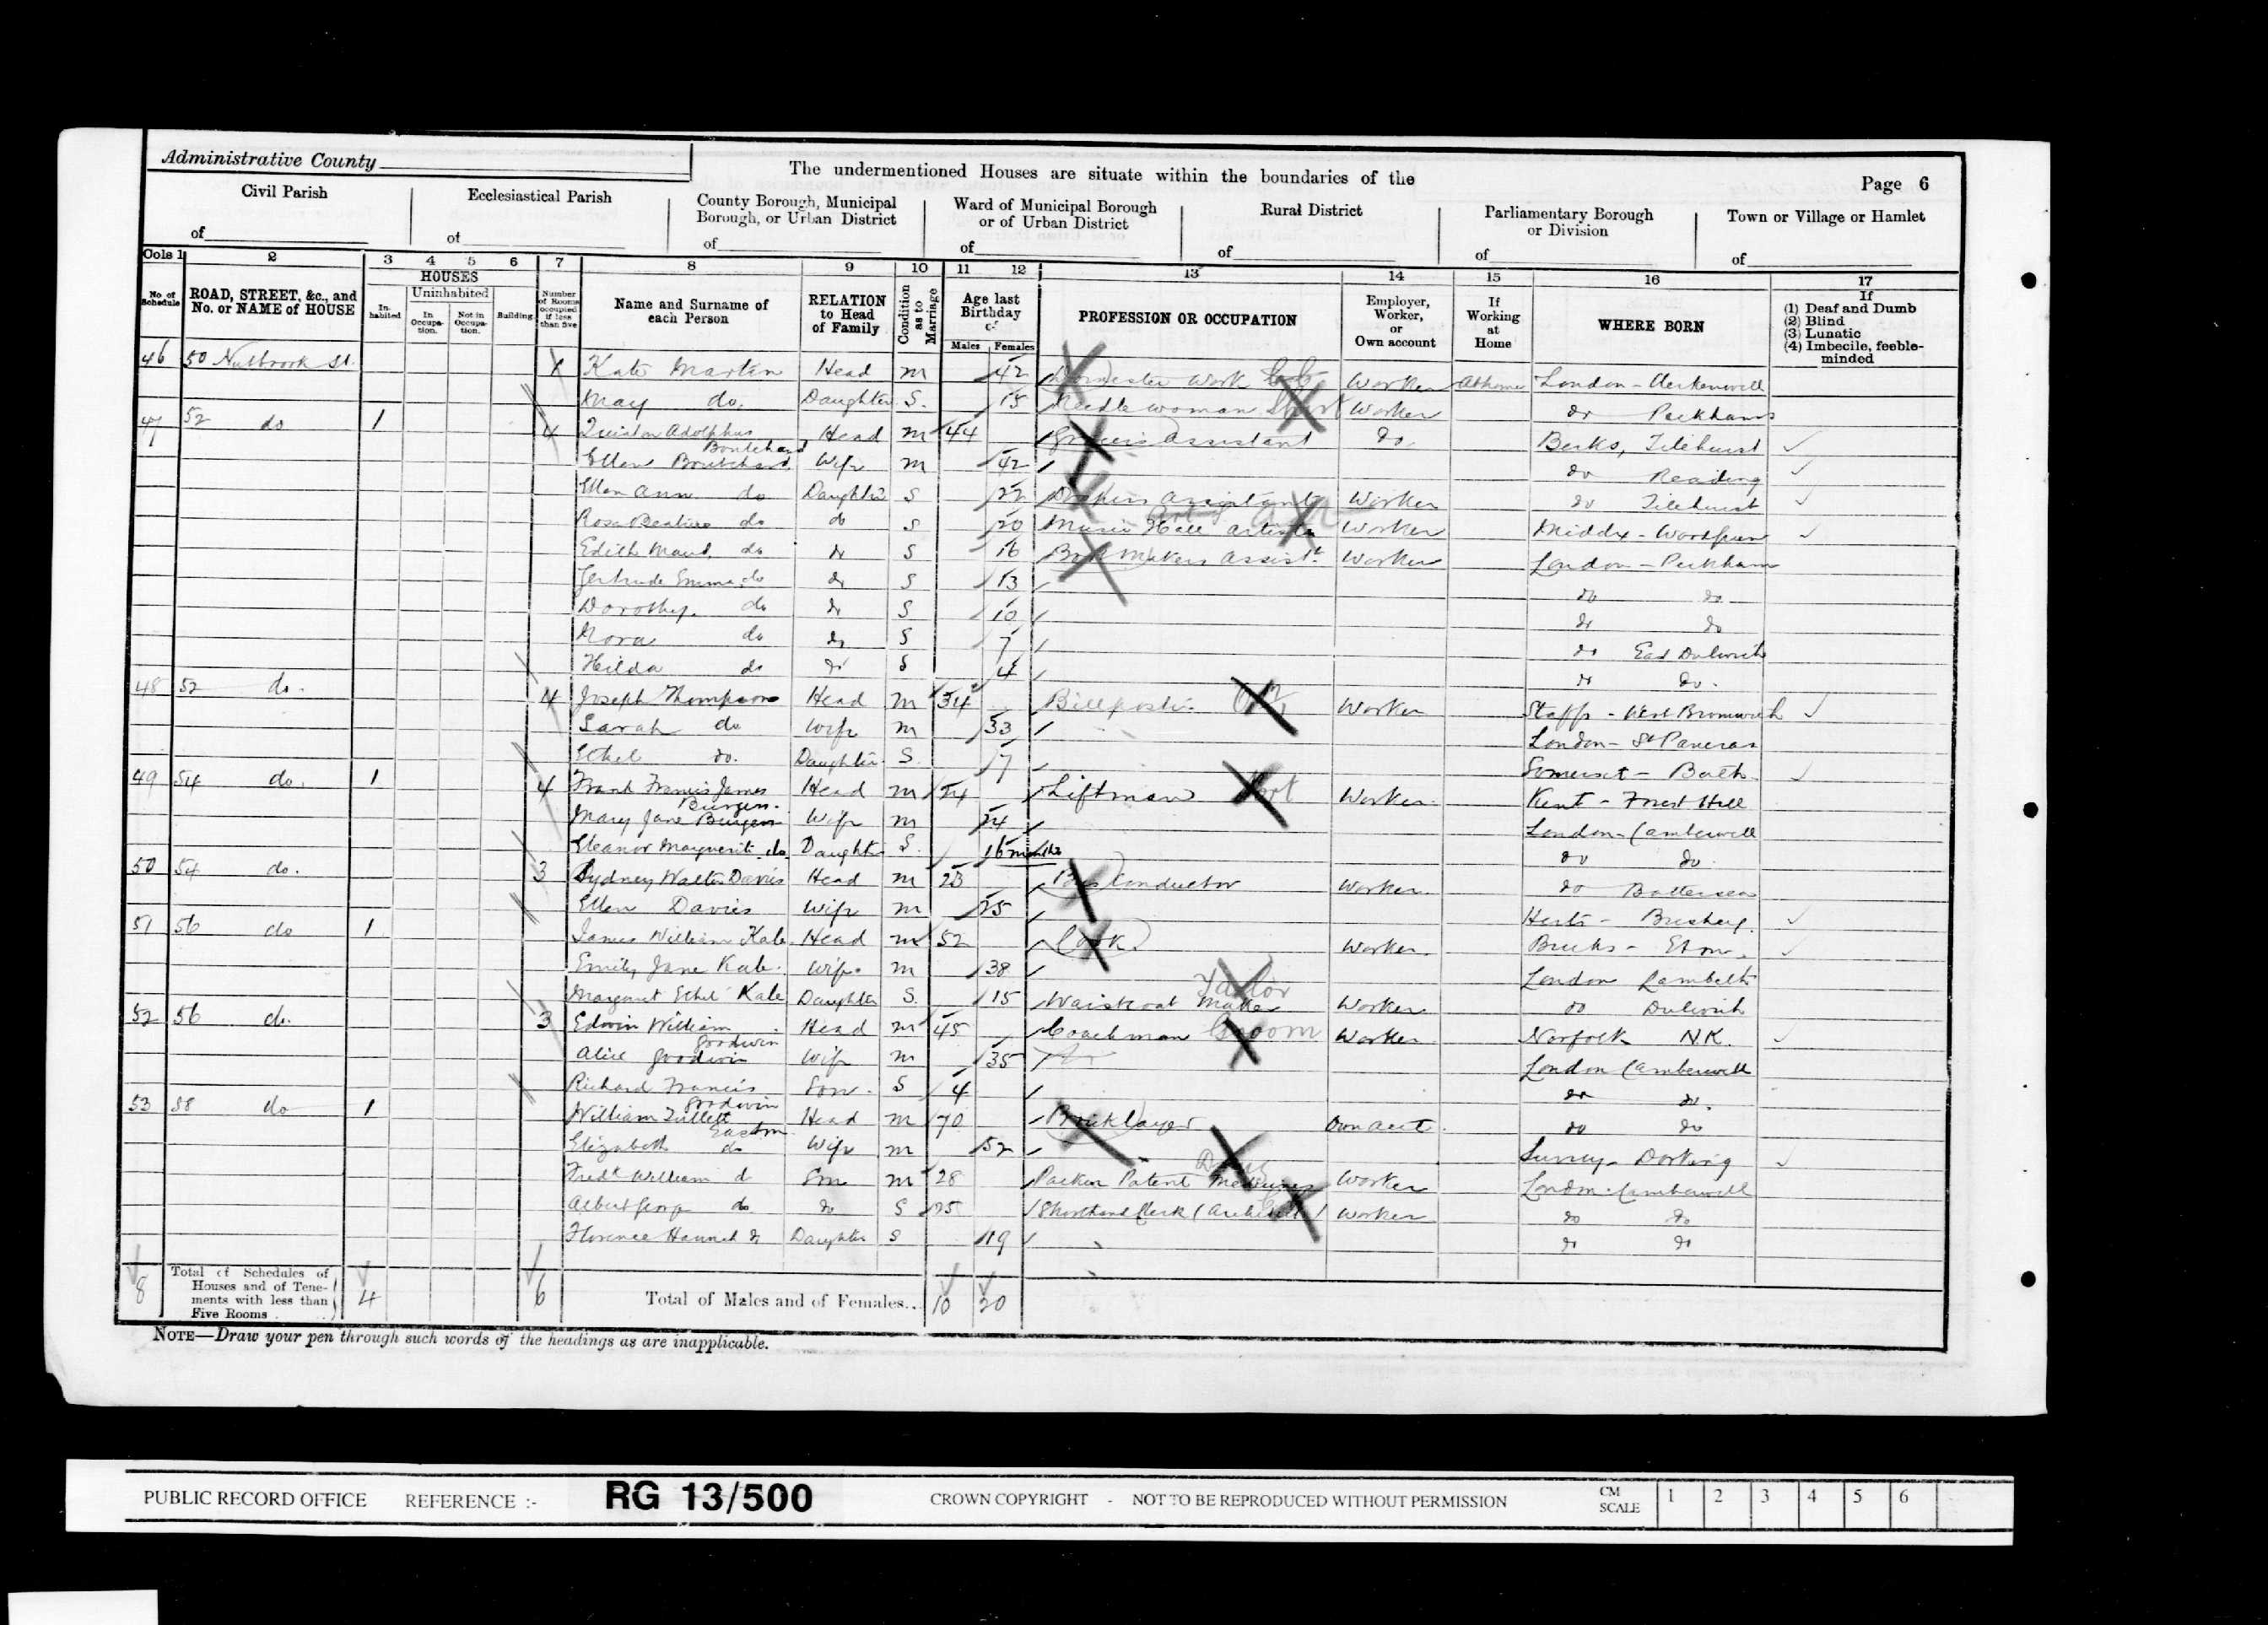 Administrative County
The undermentioned Houses are situate within the boundaries of the
Page 6
Civil Parish
of
Ecclesiastical Parish
of
County Borough, Municipal
Borough, or Urban District
of
Ward of Municipal Borough
or of Urban District
of
Rural District
of
Parliamentary Borough
or Division
of
Town or Village or Hamlet
of
Cols 1 2 3 4 5 6 7 8 9 10 11 12 13 14 15 16 17
No of Schedule
ROAD, STREET, &c., and
No. or NAME of HOUSE
HOUSES
In-habited
Uninhabited
In Occupa-tion.
Not in Occupa-tion.
Building
Number of Rooms occupied if less than five
Name and Surname of
each Person
RELATION
to Head
of Family
Condition as to Marriage
Age last
Birthday
of
Males Females
PROFESSION OR OCCUPATION
Employer,
Worker,
or
Own account
If
Working
at
Home
WHERE BORN
If
(1) Deaf and Dumb
(2) Blind
(3) Lunatic
(4) Imbecile, feeble-
minded
46 50 Nutbrook St. Kate Martin Head m 42 work Worker At home London - Clerkenwell
May do. Daughter S. 15 Needlewoman Worker do Peckham
47 52 do 1 4 Adolphus Head m 44 Grocers Assistant do. Berks, Tilehurst
Ellen Wife m 42 do Reading
Ellen Ann do Daughter S 22 Drapers Assistant Worker do Tilehurst
Rosa Beatrice do do S 20 Music Hall Artiste Worker Middx
Edith Maud do do S 16 Makers Assist. Worker London - Peckham
Gertrude Emma do do S 13 do do
Dorothy. do do S 10 do do
Nora do do S 7 do East Dulwich
Hilda do do S 4 do do.
48 52 do. 4 Joseph Thompson Head m 34 Billposter Worker Staffs - West Bromwich
Sarah do Wife m 33 London - St Pancras
Ethel do. Daughter S 7 Somerset - Bath
49 54 do. 1 4 Frank Francis James
Burgess Head m 24 Liftman Worker Kent - Forest Hill
Mary Jane Burgess Wife m 24 London - Camberwell
Eleanor Marguerite do. Daughter S. 16 months do do
50 54 do. 3 Sydney Walter Davies Head m 23 Bus Conductor Worker do Battersea
Ellen Davies Wife m 25 Herts - Bushey.
51 56 do 1 James William Kale Head m 52 Cook Worker. Bucks - Eton
Emily Jane Kale. Wife m 38 London Lambeth
Margaret Ethel Kale Daughter S. 15 Waistcoat Maker Tailor Worker do Dulwich
52 56 do. 3 Edwin William
Goodwin Head m 45 Coachman Groom Worker Norfolk N.K.
Alice Goodwin Wife m 35 London Camberwell
Richard Francis
Goodwin Son S 4 do do.
53 58 do 1 William Tullett
Easton Head m 70 Bricklayer Own acct. do do
Elizabeth do Wife m 52 Surrey - Dorking
Fredk William do Son m 28 Packer Patent Medicines Worker London - Camberwell
Albert George do do S 25 Shorthand Clerk Worker do do
Florence Hannah do Daughter S 19 do do
8 Total of Schedules of
Houses and of Tene-
ments with less than
Five Rooms 4 6 Total of Males and of Females.. 10 20
NOTE—Draw your pen through such words of the headings as are inapplicable.
PUBLIC RECORD OFFICE REFERENCE :- RG 13/500 CROWN COPYRIGHT - NOT TO BE REPRODUCED WITHOUT PERMISSION CM SCALE 1 2 3 4 5 6